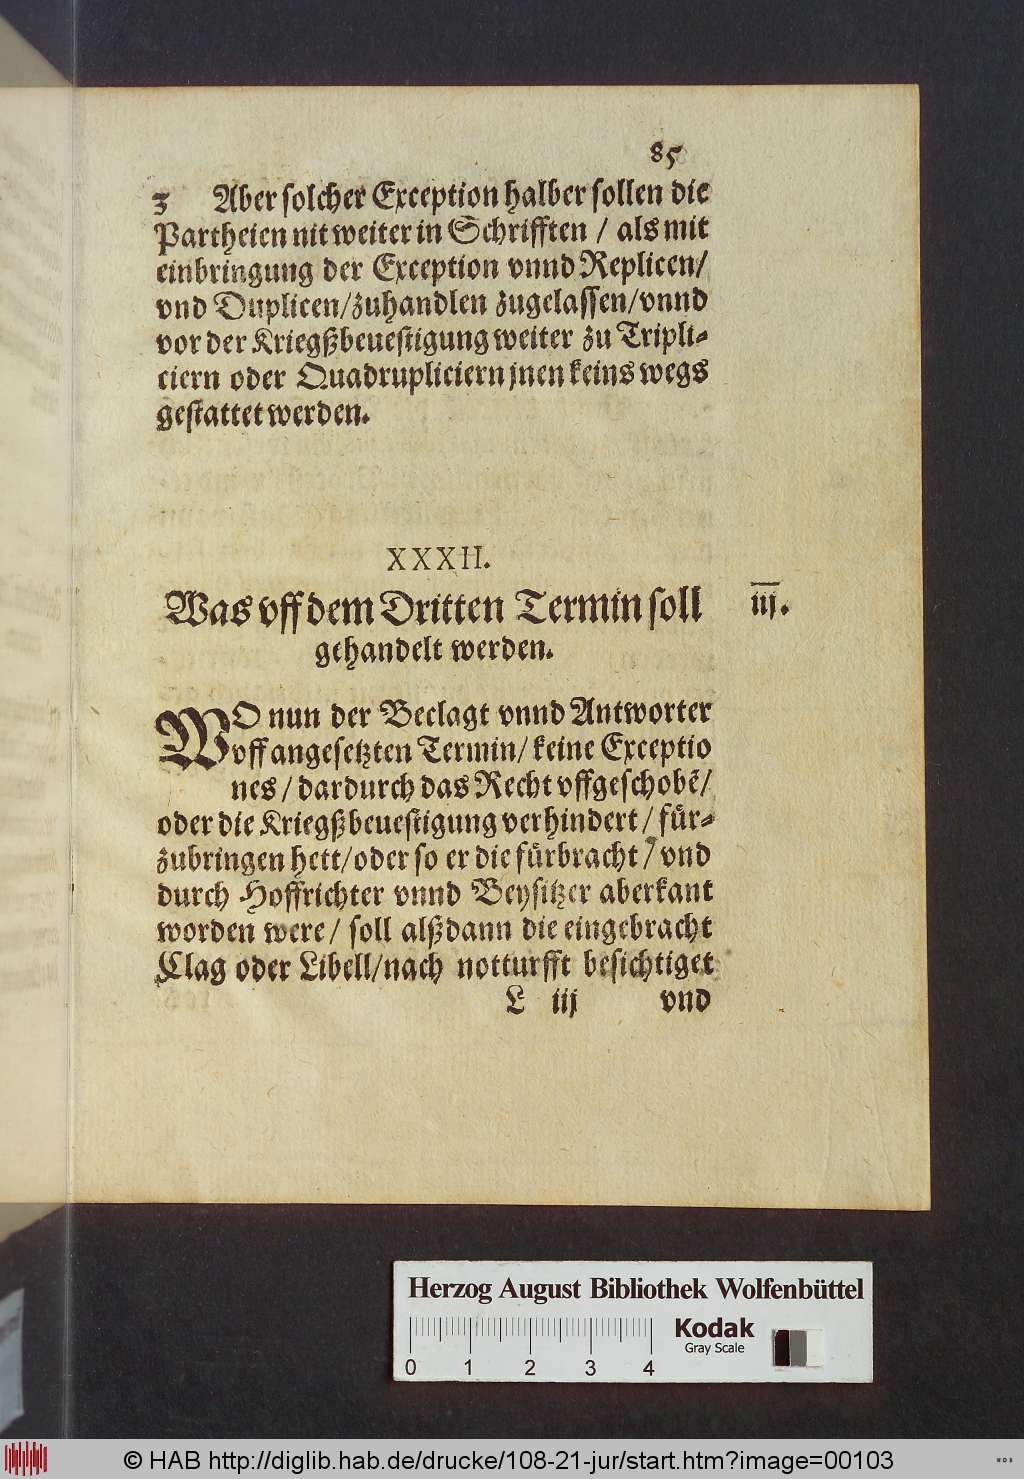 85
3 Aber solcher Exception halber sollen die
Partheien nit weiter in Schrifften / als mit
einbringung der Exception vnnd Replicen/
vnd Duplicen/zuhandlen zugelassen/vnnd
vor der Kriegßbeuestigung weiter zu Tripli-
ciern oder Quadrupliciern jnen keins wegs
gestattet werden.
XXXII.
Was vff dem Dritten Termin soll
iij.
gehandelt werden.
WO nun der Beclagt vnnd Antworter
vff angesetzten Termin/ keine Exceptio
nes / dardurch das Recht vffgeschobẽ/
oder die Kriegßbeuestigung verhindert / für-
zubringen hett/oder so er die fürbracht / vnd
durch Hoffrichter vnnd Beysitzer aberkant
worden were / soll alßdann die eingebracht
Clag oder Libell/nach notturfft besichtiget
L iij vnd
Herzog August Bibliothek Wolfenbüttel
Kodak
Gray Scale
0 1 2 3 4
© HAB http://diglib.hab.de/drucke/108-21-jur/start.htm?image=00103